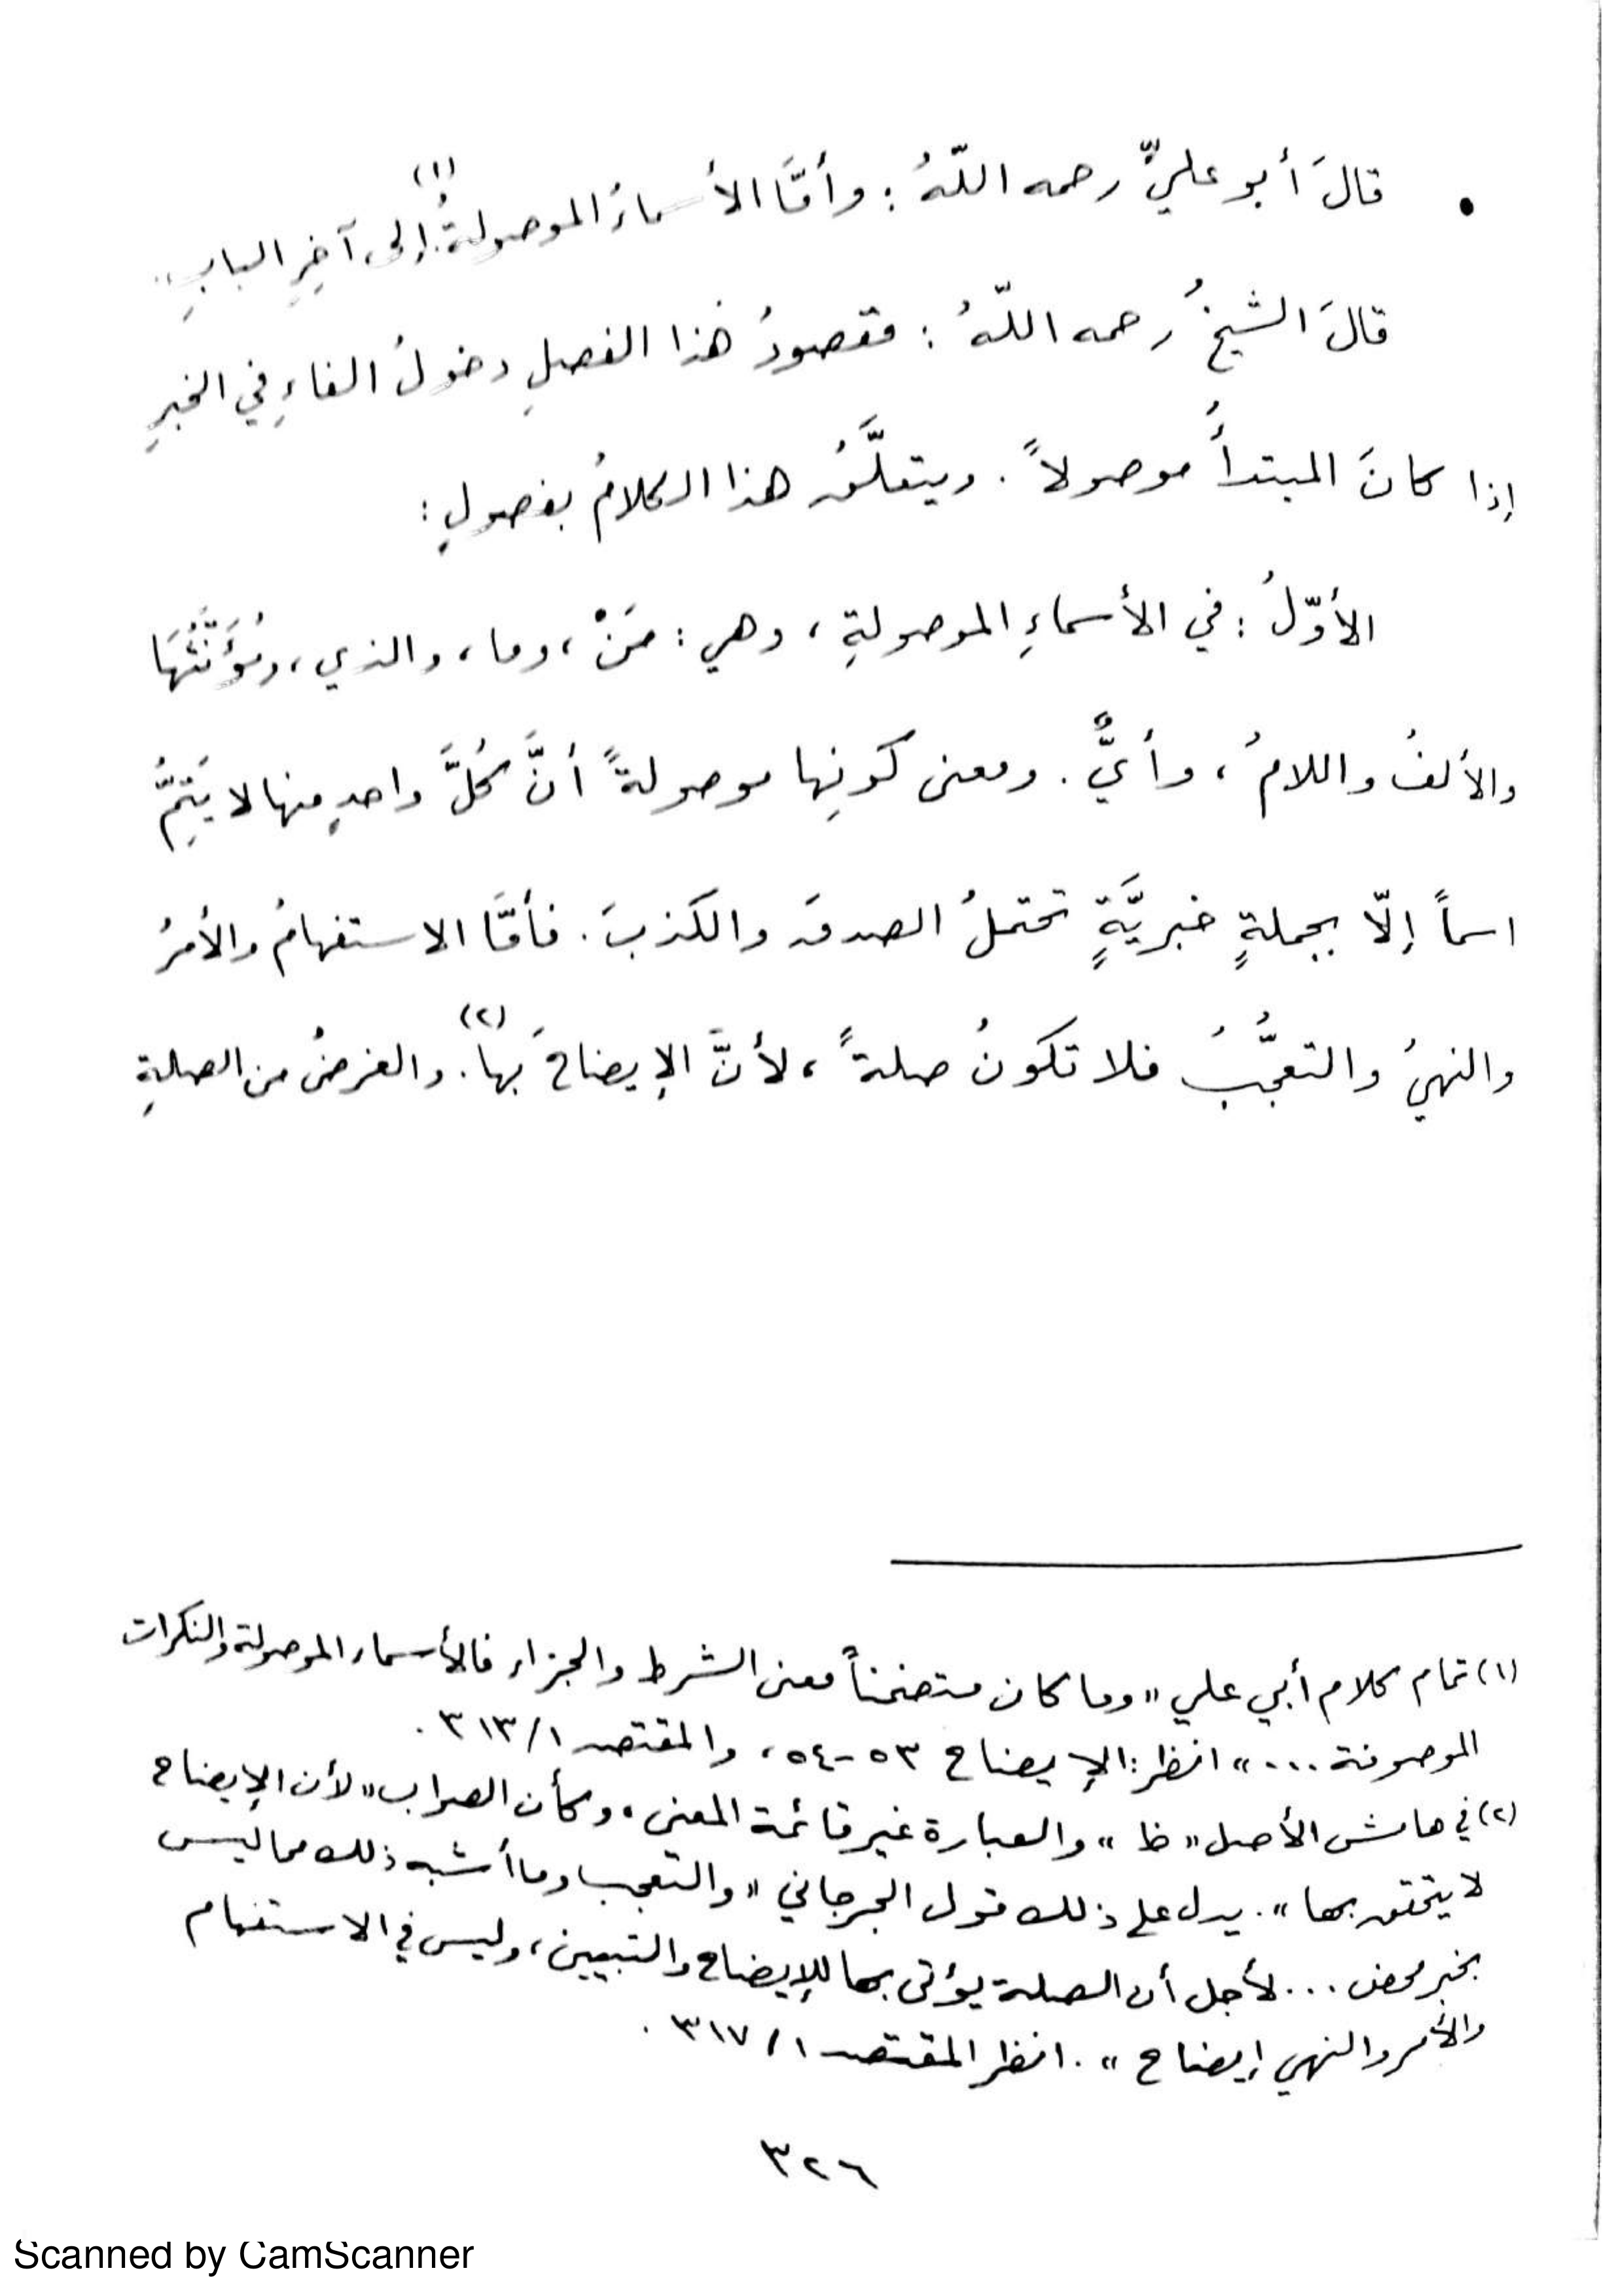 • قالَ أبو عليٍّ رحمه اللّهُ : وأمَّا الأسماءُ الموصولةُ (١) إلى آخِرِ البابِ ..
قالَ الشيخُ رحمه اللّهُ : مقصودُ هٰذا الفصلِ دخولُ الفاءِ في الخبرِ
إذا كانَ المبتدأُ موصولاً . ويتعلَّقُ هذا الكلامُ بفصولٍ :
الأوّلُ : في الأسماءِ الموصولةِ ، وهي : مَنْ ، وما ، والذي ، ومُؤَنَّثُهَا
والألفُ واللامُ ، وأيٌّ . ومعنى كونِها موصولةً أنَّ كُلَّ واحدٍ منها لا يَتِمُّ
اسماً إلّا بجملةٍ خبريَّةٍ تحتملُ الصدقَ والكذبَ . فأمَّا الاستفهامُ والأمرُ
والنهيُ والتعجُّبُ فلا تكونُ صلةً ، لأنَّ الإيضاحَ بها (٢) . والغرضُ من الصلةِ
(١) تمام كلام أبي علي « وما كان متضمناً معنى الشرط والجزاء فالأسماء الموصولة والنكرات
الموصوفة .... » انظر : الإيضاح ٥٣-٥٤ ، والمقتصد ٣١٣/١ .
(٢) في هامش الأصل « ظ » والعبارة غير قائمة المعنى ، وكأن الصواب « لأن الإيضاح
لا يتحقق بها » . يدل على ذلك قول الجرجاني « والتعجب وما أشبه ذلك مما ليس
بخبر محض ... لأجل أن الصلة يؤتى بها للإيضاح والتبيين ، وليس في الاستفهام
والأمر والنهي إيضاح » . انظر المقتصد ٣١٧/١ .
٣٢٦
Scanned by CamScanner